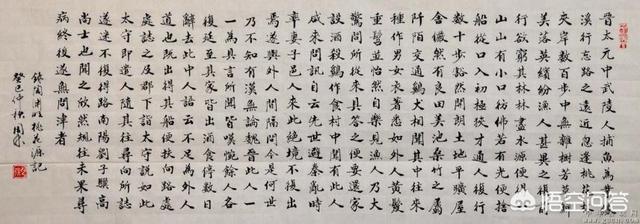 晉太元中武陵人捕魚為業緣
溪行忘路之遠近忽逢桃花林
夾岸數百步中無雜樹芳草鮮
美落英繽紛漁人甚異之復前
行欲窮其林林盡水源便得一
山山有小口彷彿若有光便捨
船從口入初極狹才通人復行
數十步豁然開朗土地平曠屋
舍儼然有良田美池桑竹之屬
阡陌交通雞犬相聞其中往來
種作男女衣著悉如外人黃髮
垂髫並怡然自樂見漁人乃大
驚問所從來具答之便要還家
設酒殺雞作食村中聞有此人
咸來問訊自云先世避秦亂時
率妻子邑人來此絕境不復出
焉遂與外人間隔問今是何世
乃不知有漢無論魏晉此人一
一為具言所聞皆嘆惋餘人各
復延至其家皆出酒食停數日
辭去此中人語云不足為外人
道也既出得其船便扶向路處
處誌之及郡下詣太守說如此
太守即遣人隨其往尋向所誌
遂迷不復得路南陽劉子驥高
尚士也聞之欣然規往未果尋
病終後遂無問津者
錄陶淵明桃花源記
癸巳仲秋
悟空问答